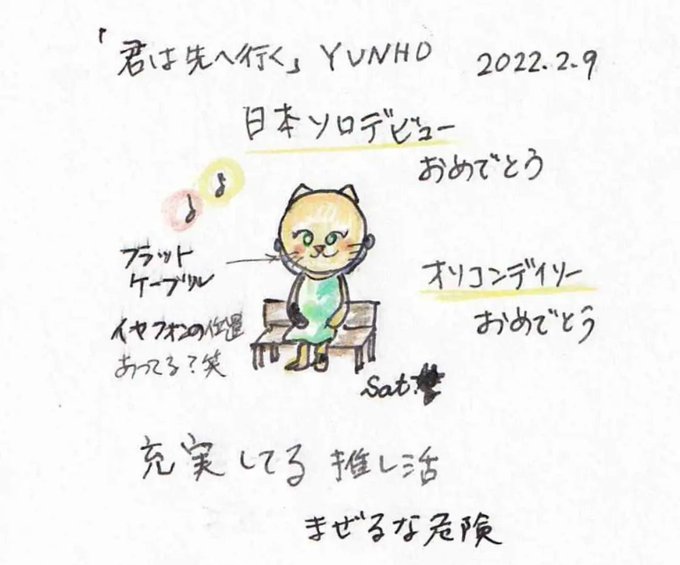 「君は先へ行く」 YUNHO 2022.2.9
日本ソロデビュー
おめでとう
フラット
ケーブル
オリコンデイリー
おめでとう
イヤフォンの位置
あってる？笑
Sat.
充実してる 推し活
まぜるな危険